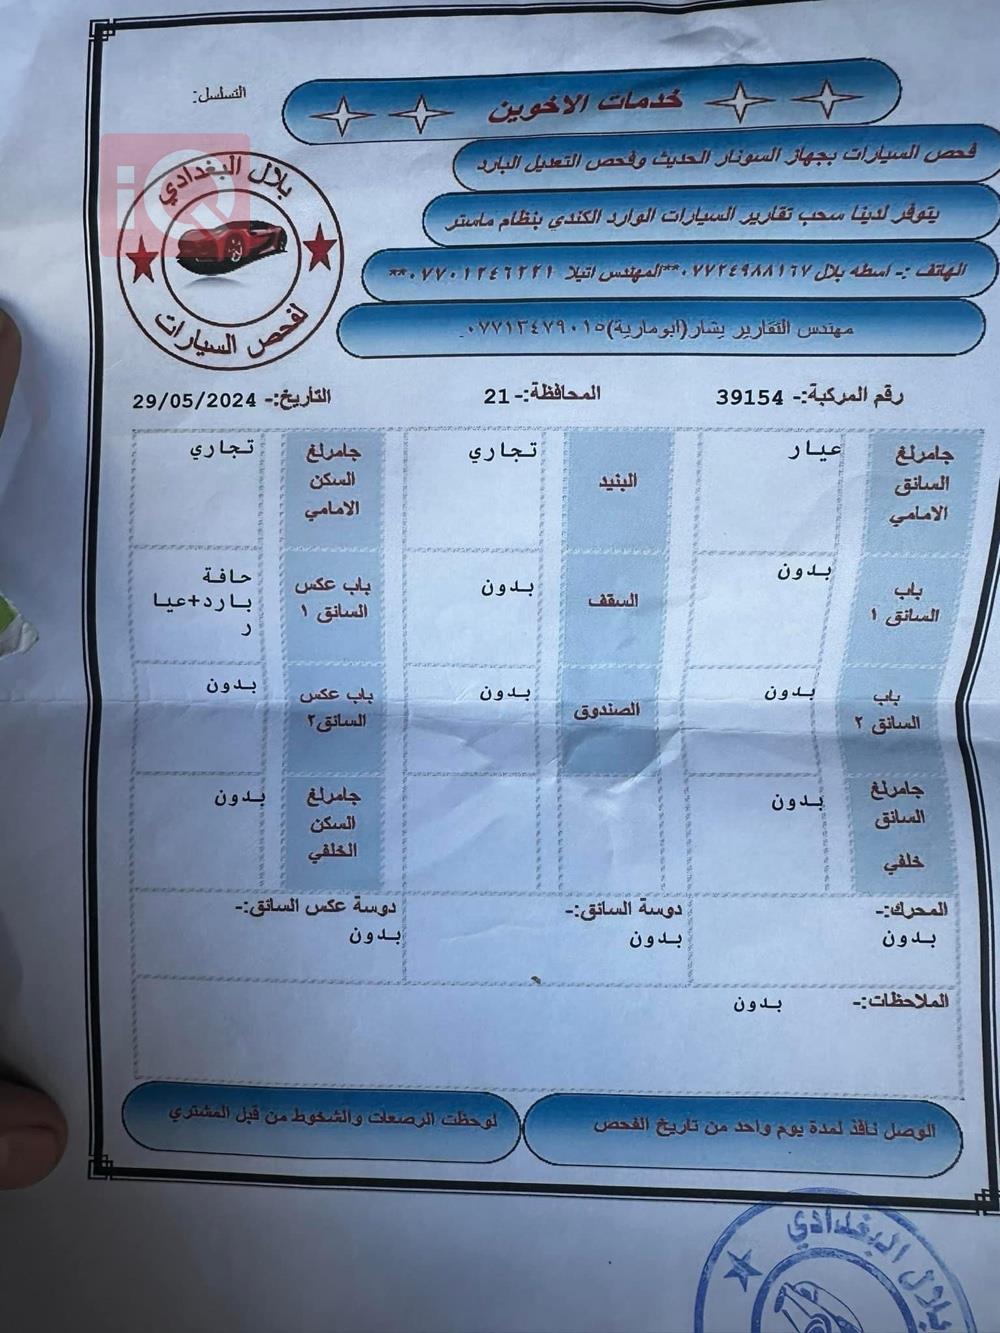 التسلسل:
خدمات الاخوين
فحص السيارات بجهاز السونار الحديث وفحص التعديل البارد
يتوفر لدينا سحب تقارير السيارات الوارد الكندي بنظام ماستر
الهاتف :- اسطه بلال ٠٧٧٢٤٩٨٨١٦٧**المهندس اتيلا ٠٧٧٠١٢٤٦٢٢١**
مهندس التقارير بشار(ابومارية)٠٧٧١٣٤٧٩٠١٥.
iQ
بلال البغدادي
لفحص السيارات
رقم المركبة:- 39154
المحافظة:- 21
التأريخ:- 29/05/2024
جامرلغ السانق الامامي
عيار
البنيد
تجاري
جامرلغ السكن الامامي
تجاري
باب السانق ١
بدون
السقف
بدون
باب عكس السانق ١
حافة بارد+عيار
باب السانق ٢
بدون
الصندوق
بدون
باب عكس السانق٢
بدون
جامرلغ السانق خلفي
بدون
جامرلغ السكن الخلفي
بدون
المحرك:-
بدون
دوسة السانق:-
بدون
دوسة عكس السانق:-
بدون
الملاحظات:- بدون
الوصل نافذ لمدة يوم واحد من تاريخ الفحص
لوحظت الرصعات والشخوط من قبل المشتري
بلال البغدادي